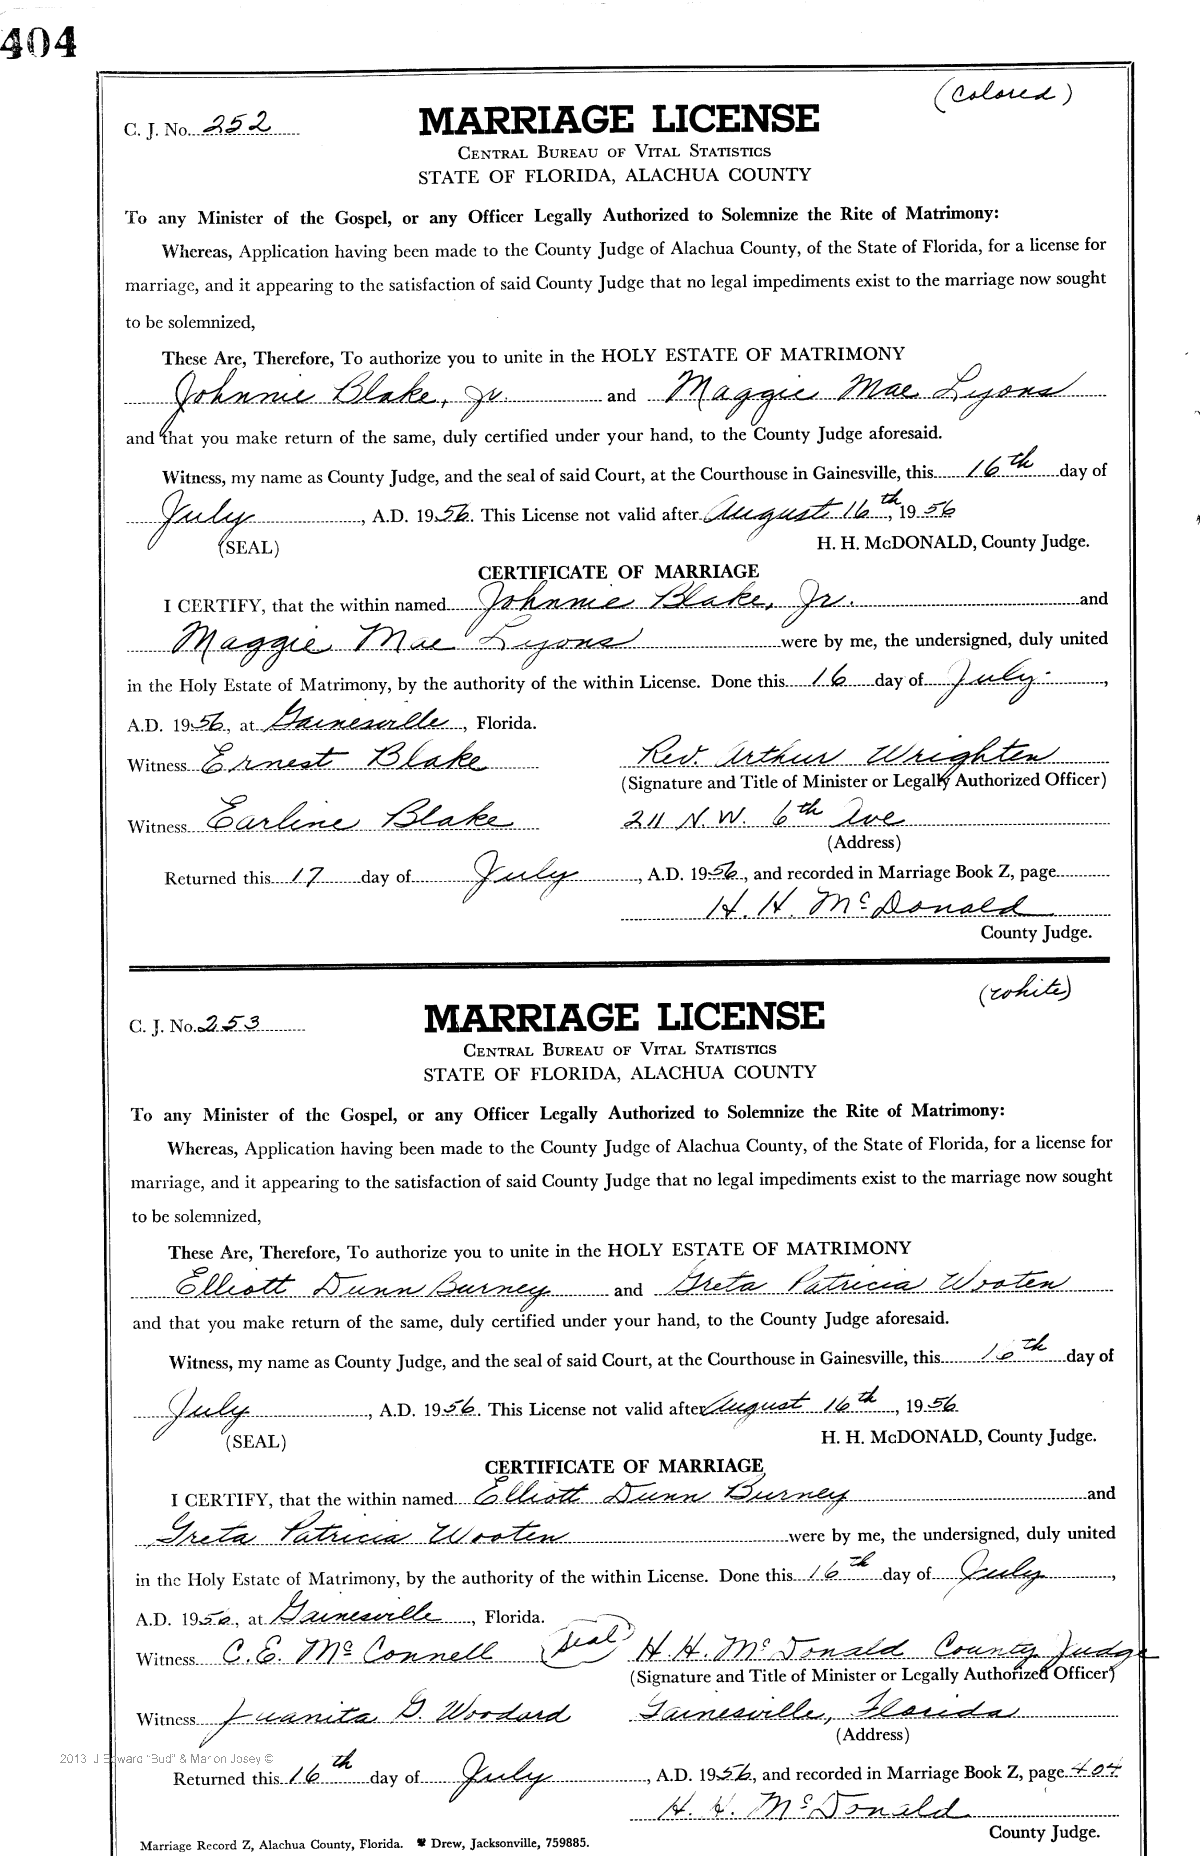 404
(colored)
C. J. No. 252
MARRIAGE LICENSE
CENTRAL BUREAU OF VITAL STATISTICS
STATE OF FLORIDA, ALACHUA COUNTY
To any Minister of the Gospel, or any Officer Legally Authorized to Solemnize the Rite of Matrimony:
Whereas, Application having been made to the County Judge of Alachua County, of the State of Florida, for a license for
marriage, and it appearing to the satisfaction of said County Judge that no legal impediments exist to the marriage now sought
to be solemnized,
These Are, Therefore, To authorize you to unite in the HOLY ESTATE OF MATRIMONY
Johnnie Blake, Jr. and Maggie Mae Lyons
and that you make return of the same, duly certified under your hand, to the County Judge aforesaid.
Witness, my name as County Judge, and the seal of said Court, at the Courthouse in Gainesville, this 16th day of
July, A.D. 1956. This License not valid after August 16th, 1956
(SEAL) H. H. McDONALD, County Judge.
CERTIFICATE OF MARRIAGE
I CERTIFY, that the within named Johnnie Blake, Jr. and
Maggie Mae Lyons were by me, the undersigned, duly united
in the Holy Estate of Matrimony, by the authority of the within License. Done this 16 day of July,
A.D. 1956, at Gainesville, Florida.
Witness Ernest Blake Rev. Arthur Wrighten
(Signature and Title of Minister or Legally Authorized Officer)
Witness Earline Blake 211 N.W. 6th Ave
(Address)
Returned this 17 day of July, A.D. 1956, and recorded in Marriage Book Z, page
H. H. McDonald
County Judge.
(white)
C. J. No. 253
MARRIAGE LICENSE
CENTRAL BUREAU OF VITAL STATISTICS
STATE OF FLORIDA, ALACHUA COUNTY
To any Minister of the Gospel, or any Officer Legally Authorized to Solemnize the Rite of Matrimony:
Whereas, Application having been made to the County Judge of Alachua County, of the State of Florida, for a license for
marriage, and it appearing to the satisfaction of said County Judge that no legal impediments exist to the marriage now sought
to be solemnized,
These Are, Therefore, To authorize you to unite in the HOLY ESTATE OF MATRIMONY
Elliott Dunn Burney and Greta Patricia Wooten
and that you make return of the same, duly certified under your hand, to the County Judge aforesaid.
Witness, my name as County Judge, and the seal of said Court, at the Courthouse in Gainesville, this 16th day of
July, A.D. 1956. This License not valid after August 16th, 1956
(SEAL) H. H. McDONALD, County Judge.
CERTIFICATE OF MARRIAGE
I CERTIFY, that the within named Elliott Dunn Burney and
Greta Patricia Wooten were by me, the undersigned, duly united
in the Holy Estate of Matrimony, by the authority of the within License. Done this 16th day of July,
A.D. 1956, at Gainesville, Florida.
Witness C. E. McConnell (Seal) H. H. McDonald County Judge
(Signature and Title of Minister or Legally Authorized Officer)
Witness Juanita G. Woodard Gainesville, Florida
(Address)
2013 J Edward "Bud" & Marion Josey ©
Returned this 16th day of July, A.D. 1956, and recorded in Marriage Book Z, page 404
H. H. McDonald
County Judge.
Marriage Record Z, Alachua County, Florida. Drew, Jacksonville, 759885.